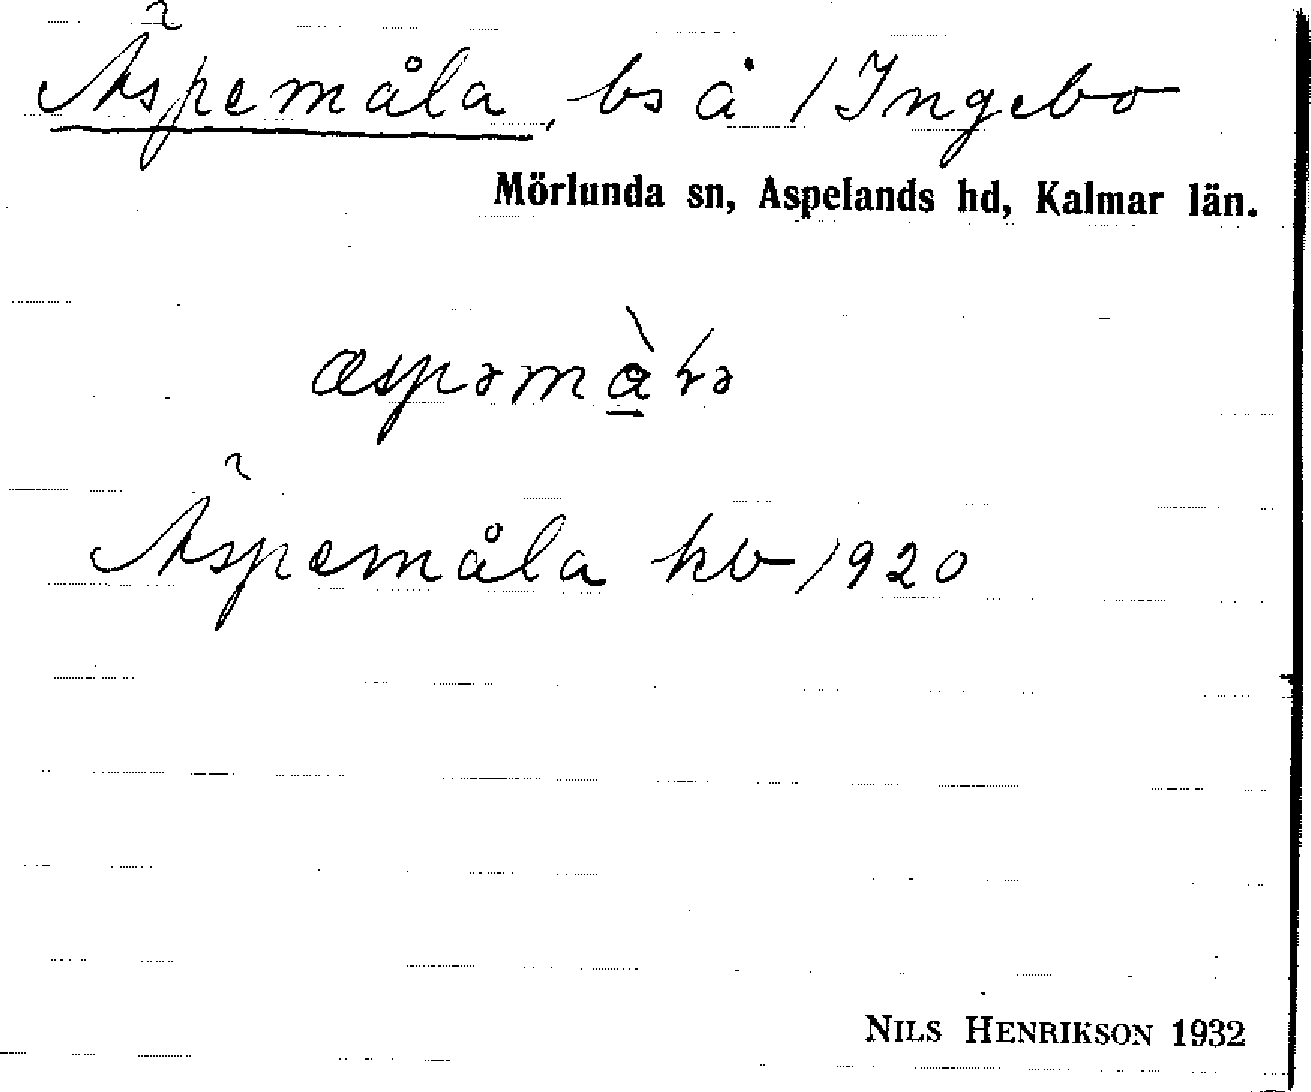 Äspemåla, bs å /Ingebo
Mörlunda sn, Aspelands hd, Kalmar län.
Äspemåla kb 1920
NILS HENRIKSON 1932